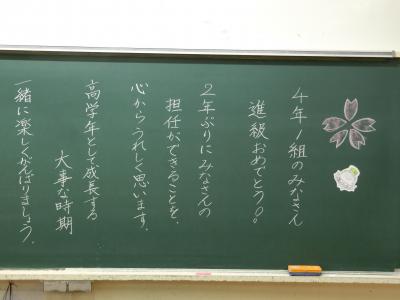 4年1組のみなさん
進級おめでとう○。
2年ぶりにみなさんの
担任ができることを、
心からうれしく思います。
高学年として成長する
大事な時期
一緒に楽しくがんばりましょう。